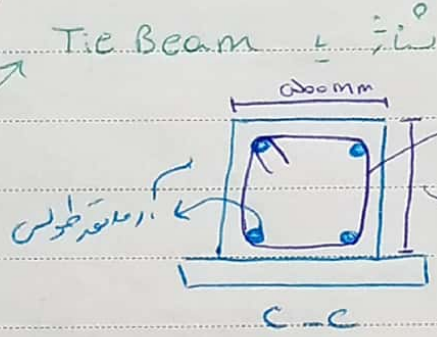 Tie Beam
۵۰۰mm
آرماتور طولی
C-C